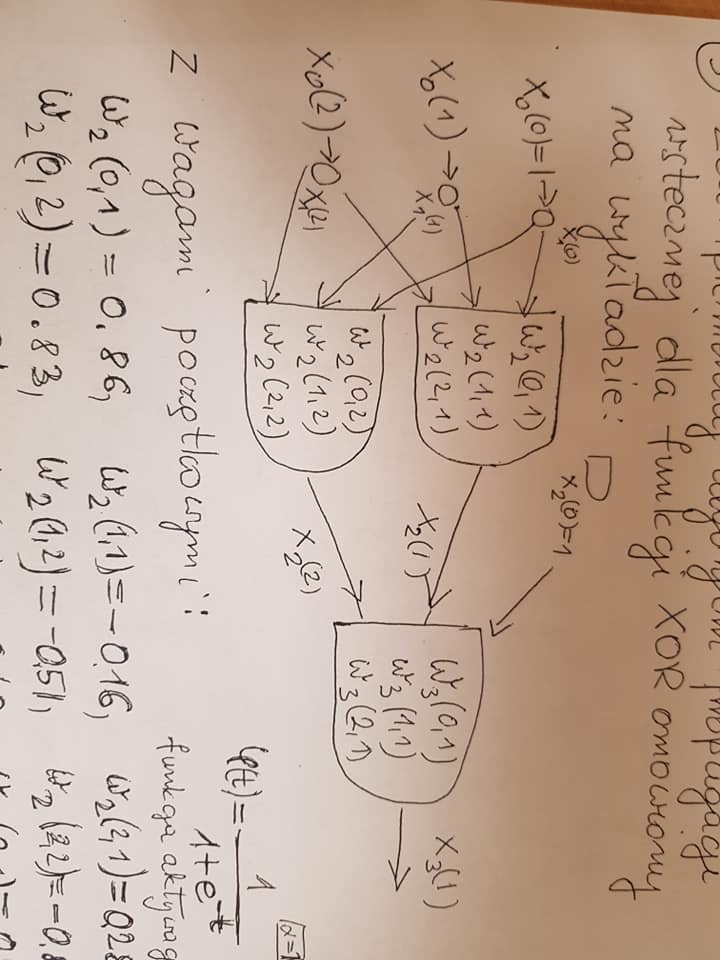 3
propagacji
wstecznej dla funkcji XOR omowiony
na wykładzie:
x₀(0)=1 x₁(0)
x₀(1) x₁(1)
x₀(2) x₁(2)
w₂(0,1)
w₂(1,1)
w₂(2,1)
w₂(0,2)
w₂(1,2)
w₂(2,2)
x₂(0)=1
x₂(1)
x₂(2)
w₃(0,1)
w₃(1,1)
w₃(2,1)
x₃(1)
α=1
φ(t)= 1
1+e^-t
funkcja
z wagami początkowymi:
w₂(0,1) = 0.86, w₂(1,1)=-0.16, w₂(2,1)=0.28
w₂(0,2) = 0.83, w₂(1,2)=-0.51, w₂(2,2)=-0.8